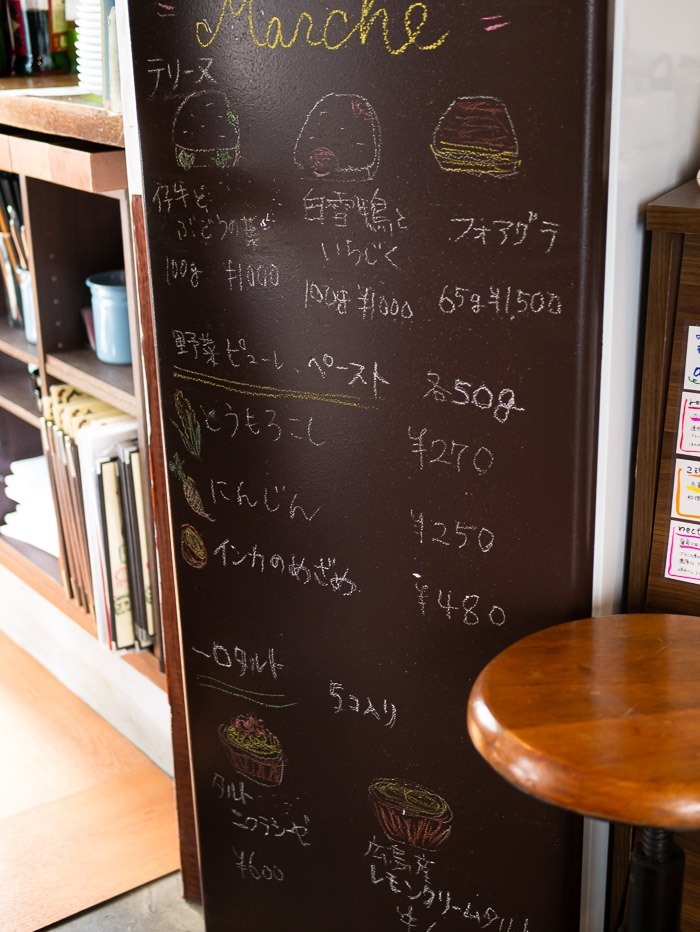 Marche
テリーヌ
仔牛と
ぶどうの葉
100g ¥1000
白雪鴨と
いちじく
100g ¥1000
フォアグラ
65g ¥1,500
野菜ピューレ、ペースト 各50g
とうもろこし ¥270
にんじん ¥250
インカのめざめ ¥480
一口タルト 5コ入り
タルト
ニソラシーゼ
¥600
広島産
レモンクリームタルト